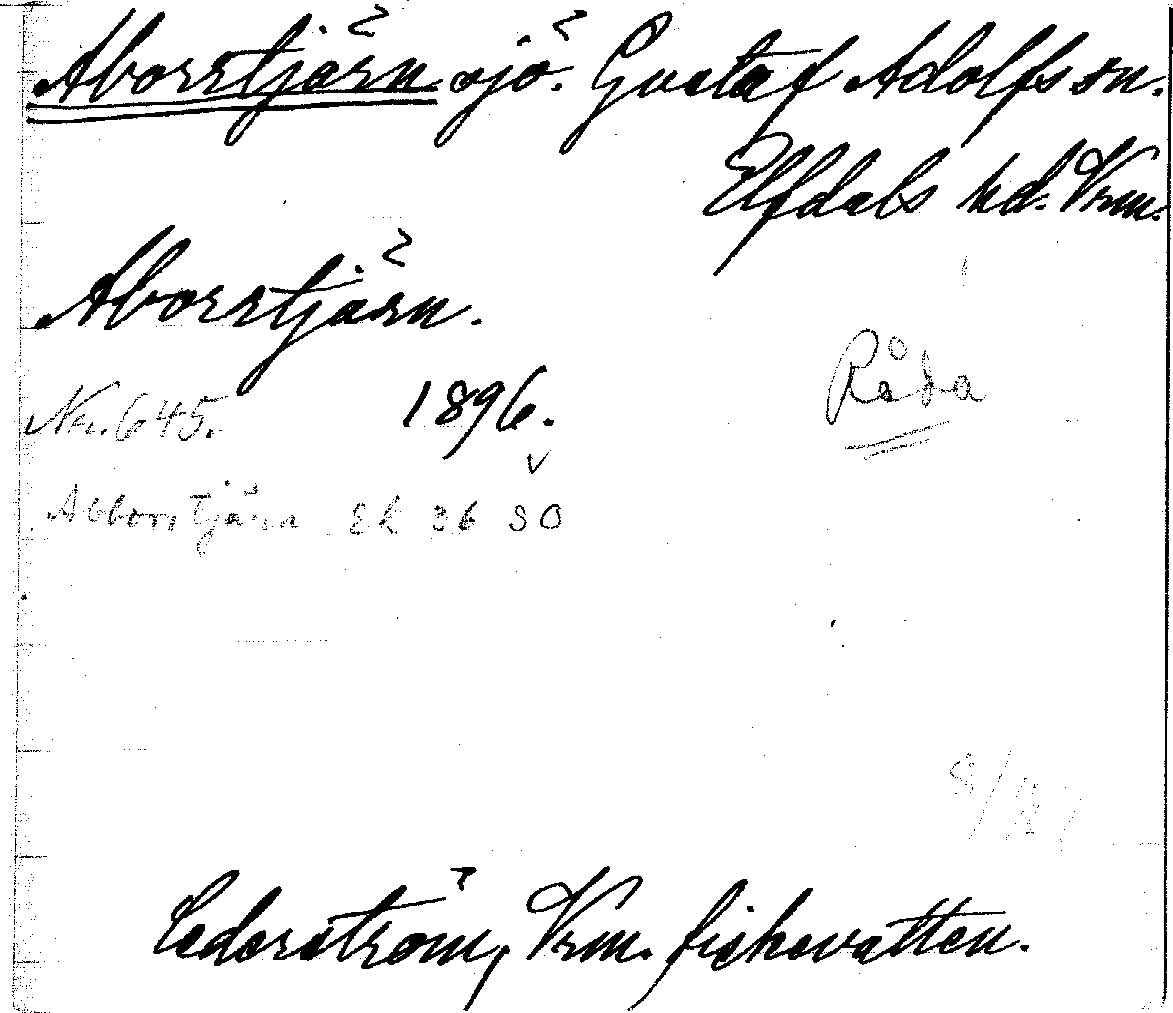 Aborrtjärn. sjö. Gustaf Adolfs sn.
Elfdals hd. Vrm.
Aborrtjärn.
Råda
Nr. 645. 1896.
Abborrtjärn Ek 36 SO
Cederström, Vrm. fiskevatten.